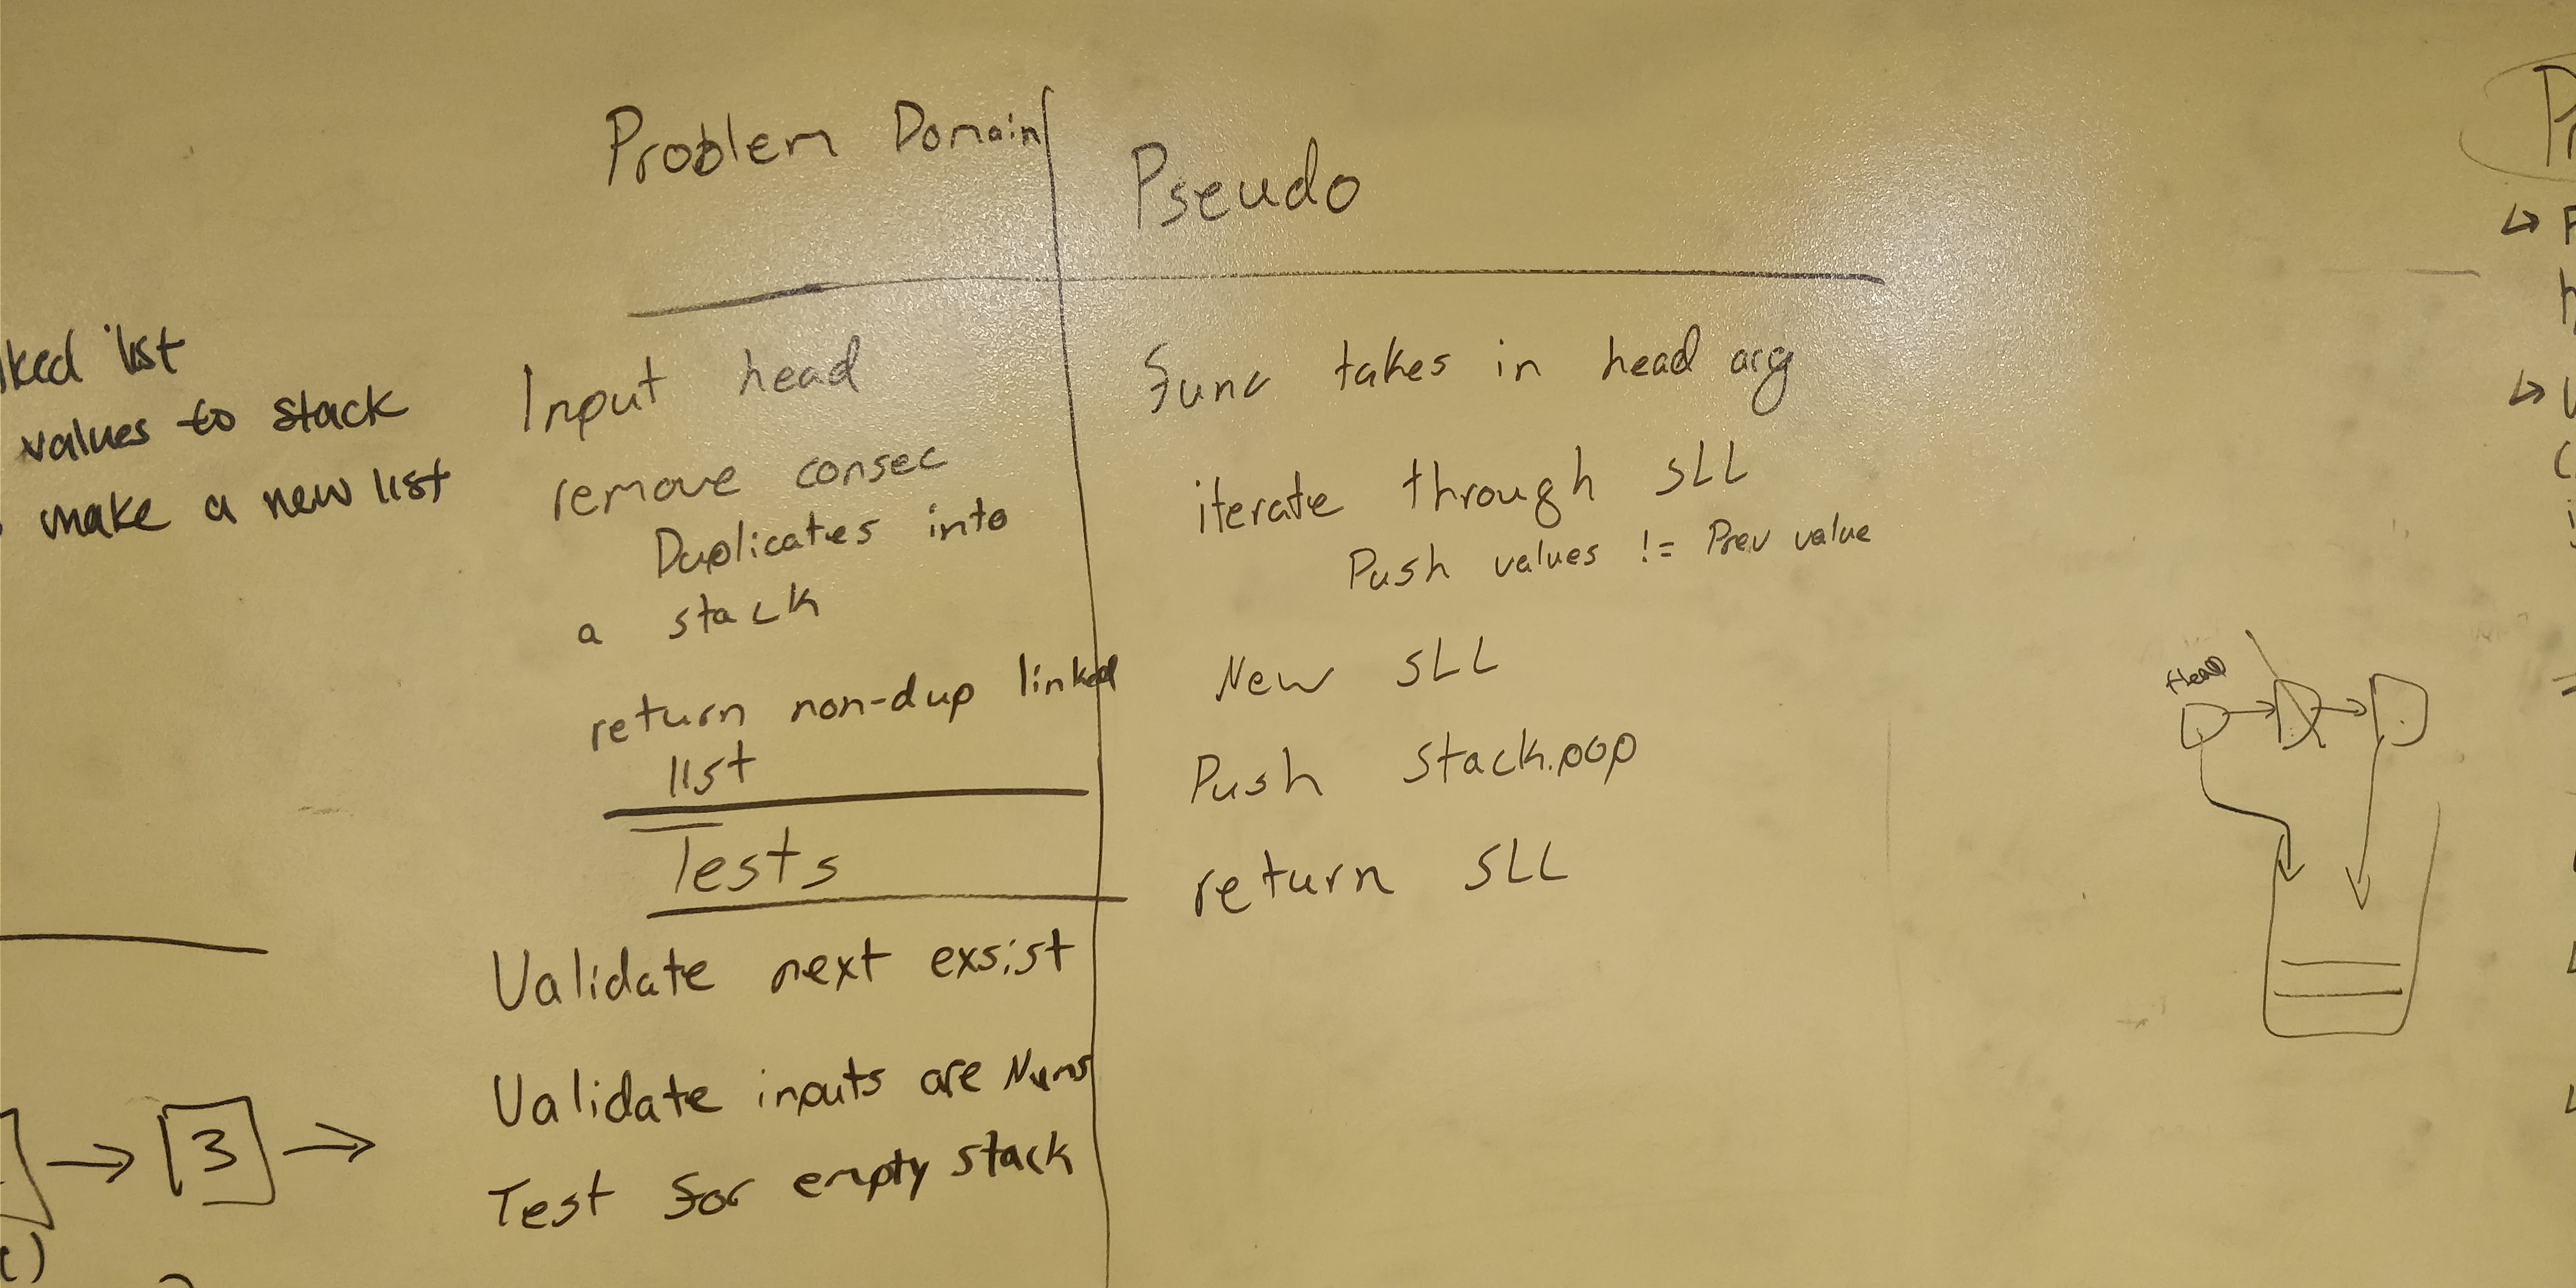 values to stack
make a new list
3
Problem Domain
Input head
remove consec
Duplicates into
a stack
return non-dup linked
list
Tests
Validate next exsist
Validate inputs are Nums
Test for empty stack
Pseudo
func takes in head arg
iterate through SLL
Push values != Prev value
New SLL
Push stack.pop
return SLL
Head